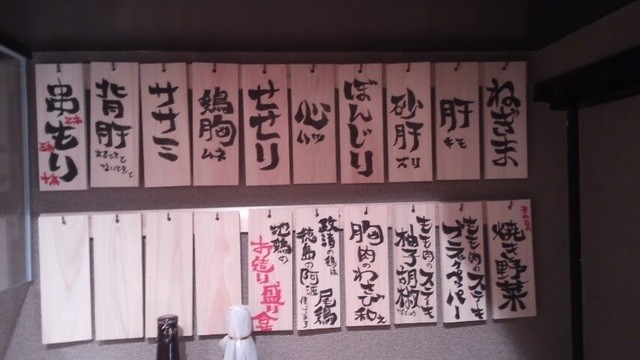 ねぎま
肝
キモ
砂肝
ズリ
ぼんじり
心
ハツ
せせり
鶏胸
ムネ
ササミ
背肝
串もり
焼き野菜
もも肉のステーキ
ブラックペッパー
もも肉のステーキ
柚子胡椒
胸肉のわさび和え
政清の鶏は
徳島の阿波
尾鶏
地鶏の
お造り盛り合